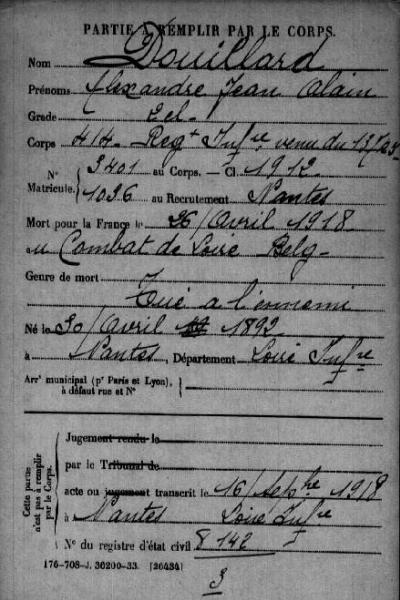 PARTIE A REMPLIR PAR LE CORPS.
Nom Douillard
Prénoms Alexandre Jean Alain
Grade 2 cl.
Corps 414 Regt Infie venu du 137
N° Matricule. 3401 au Corps. — Cl. 1912
1036 au Recrutement Nantes
Mort pour la France le 26/Avril 1918
au Combat de Loire Belg-
Genre de mort
Tué a l'ennemi
Né le 30/Avril 1892
à Nantes, Département Loire Infre
Arrt municipal (pr Paris et Lyon), à défaut rue et N°
Cette partie n'est pas à remplir par le Corps.
Jugement rendu le
par le Tribunal de
acte ou jugement transcrit le 16/Sepbre 1918
à Nantes Loire Infre
N° du registre d'état civil 8142
176-708-J. 36200-33. [26434]
3